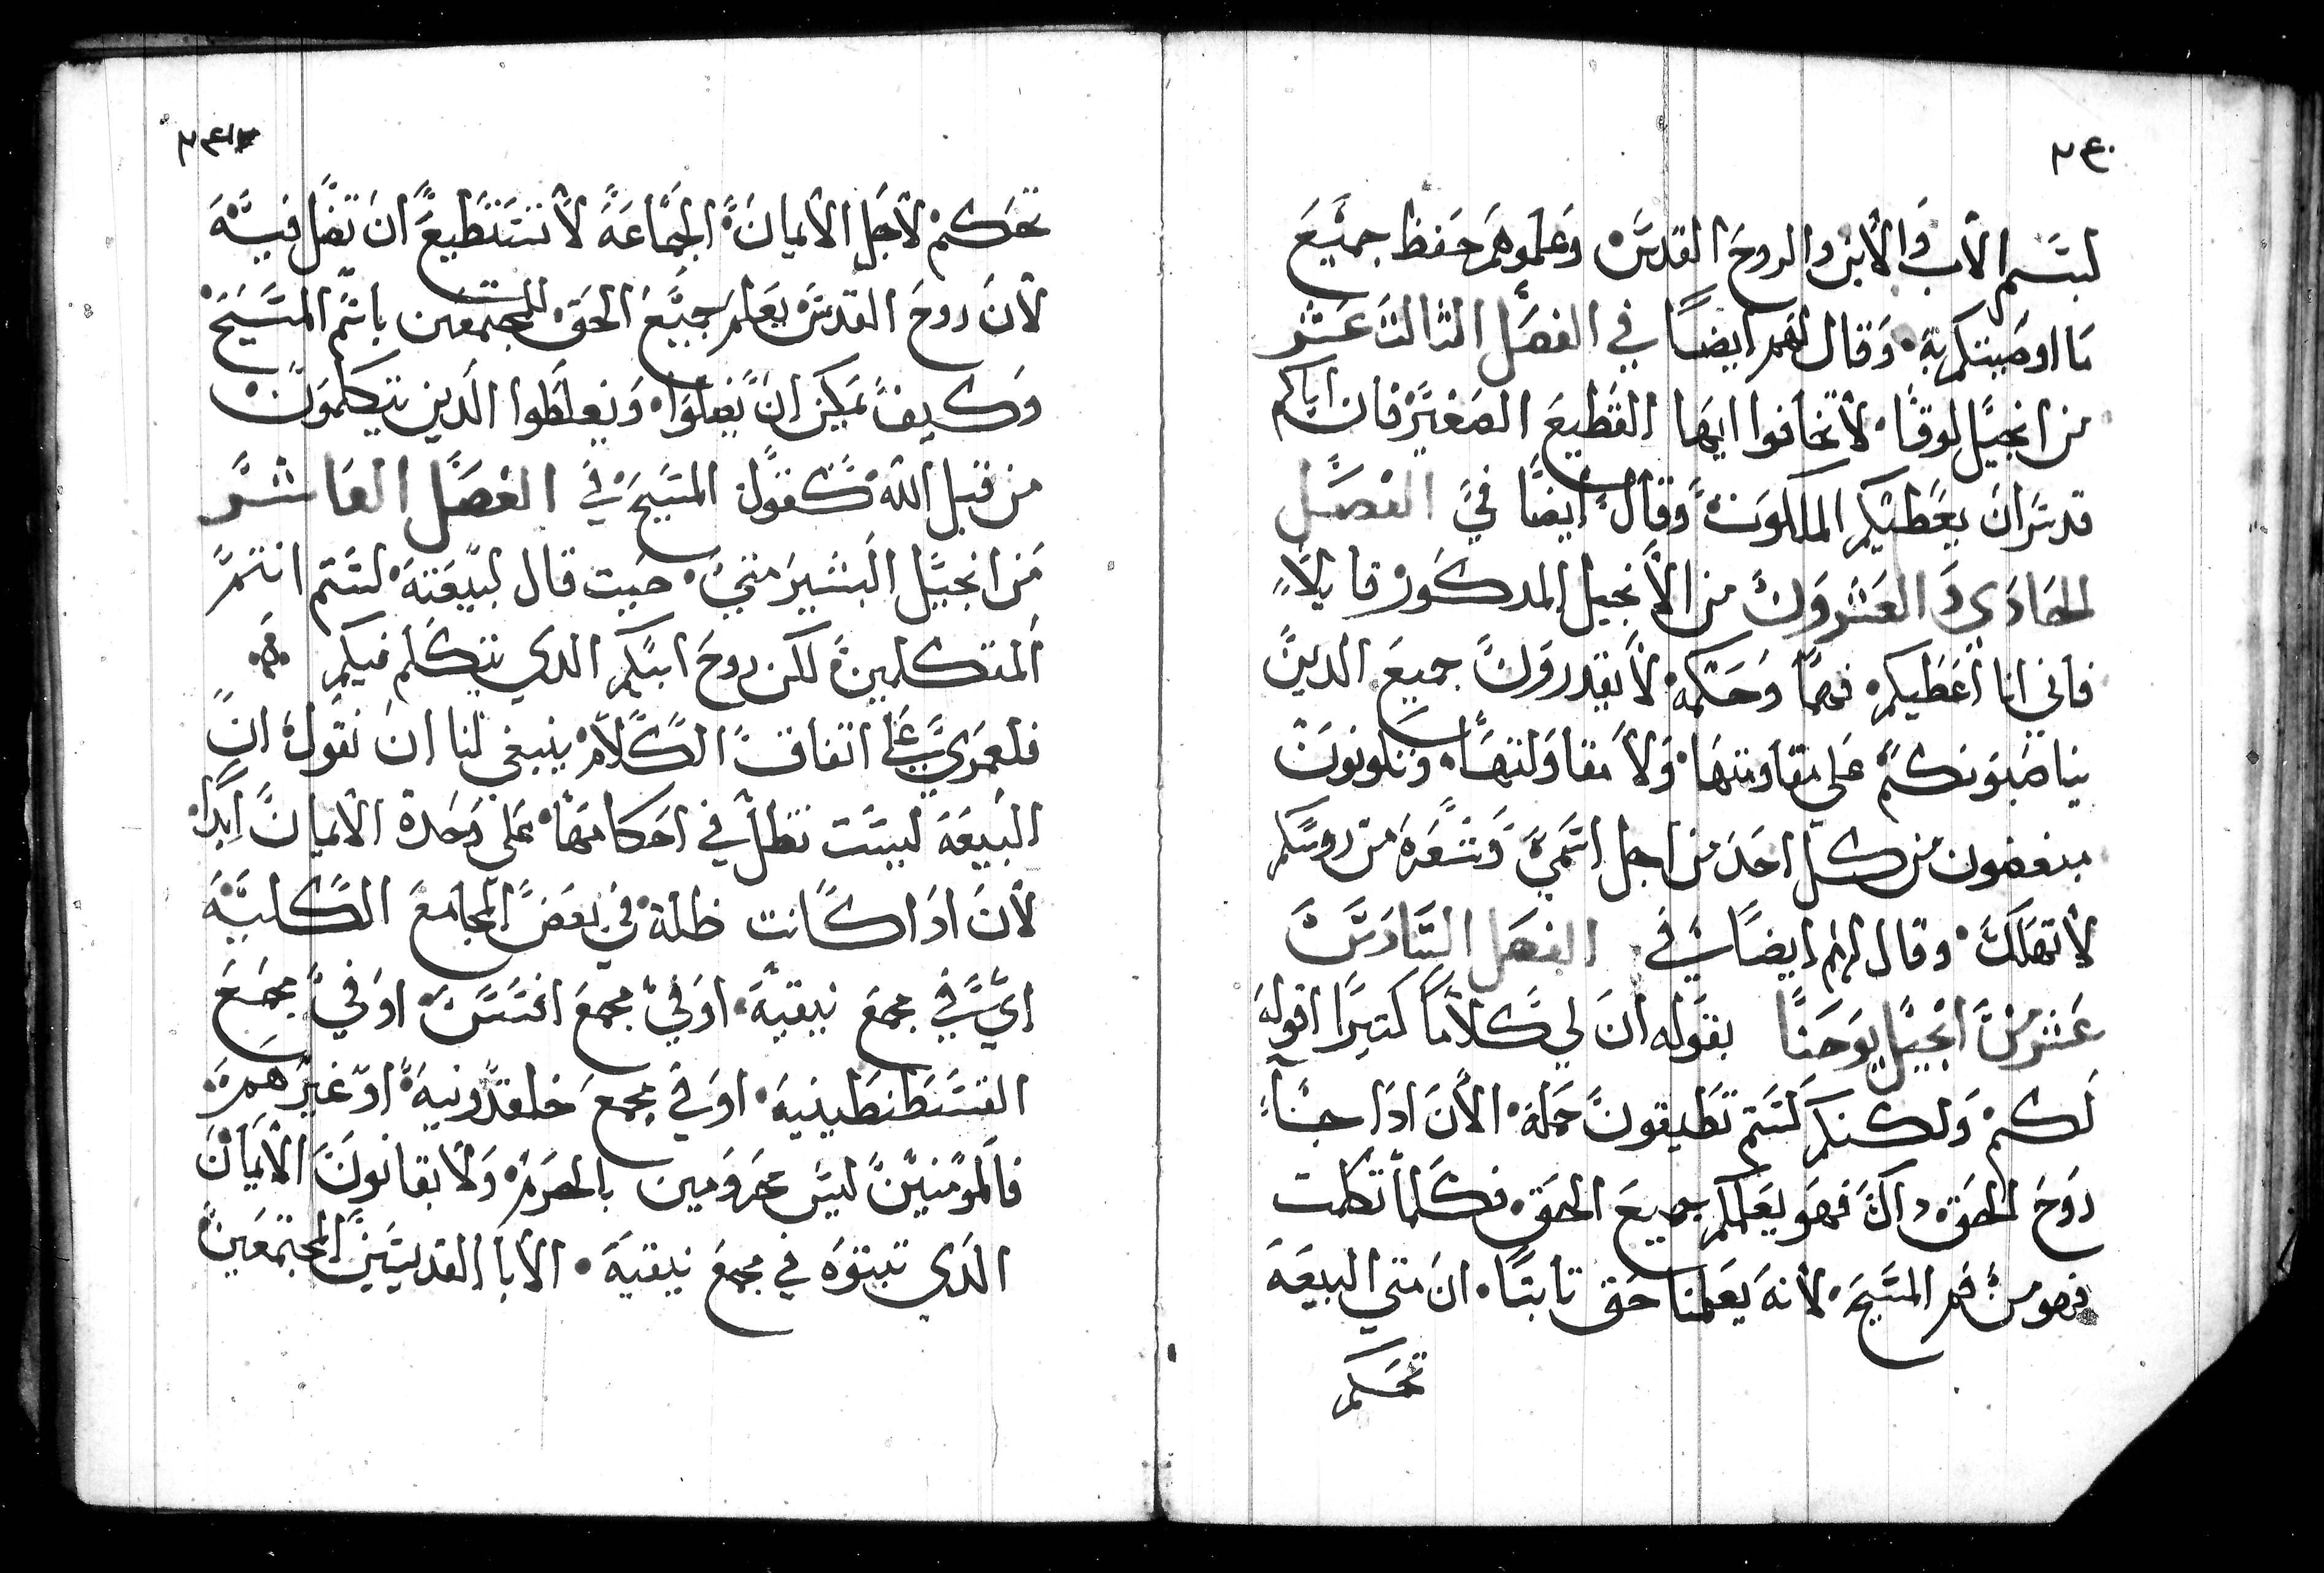 ٢٤٠
لبسم الاب والابن والروح القدس وعلموهم حفظ جميع
ما اوصيتكم به وقال لهم ايضا في الفصل الثالث عشر
من انجيل لوقا لا تخافوا ايها القطيع الصغير فان اباكم
قد سر ان يعطيكم الملكوت وقال ايضا في الفصل
الحادي والعشرون من الانجيل المدكور قايلا
فاني انا اعطيكم فهما وحكمة لا يقدرون جميع الدين
يناصبونكم على مقاومتها ولا مقاولتها وتكونون
مبغضون من كل احد من اجل اسمي وشعرة من روسكم
لا تهلك وقال لهم ايضا في الفصل السادس
عشر من انجيل يوحنا بقوله ان لي كلاما كتيرا اقوله
لكم ولكنكم لستم تطيقون حمله الان ادا جا
روح الحق داك فهو يعلمكم جميع الحق فكلما تكلمت
فهو من فم المسيح لانه يعلمنا حق تابتا ان متي البيعة
تحكم
٢٤١
تحكم لاجل الايمان الجماعة لا تستطيع ان تضل فيه
لان روح القدس يعلم جميع الحق للمجتمعين باسم المسيح
وكيف يمكن ان يضلوا ويغلطوا الدين يتكلمون
من قبل الله كقول المسيح في الفصل العاشر
من انجيل البشير متي حيت قال لبيعته لستم انتم
المتكلمين لكن روح ابيكم الدي يتكلم فيكم
فلعمري على اتفاق الكلام ينبغي لنا ان نقول ان
البيعة ليست تظل في احكامها على وحدة الايمان ابدا
لان ادا كانت ظلة في بعض المجامع الكلية
اي في مجمع نيقية او في مجمع افسس او في مجمع
القسطنطينية او في مجمع خلقدونية او غيرهم
فالمومنين ليس محرومين بالحرم ولا بقانون الايمان
الدي تبتوه في مجمع نيقية الابا القديسين المجتمعين